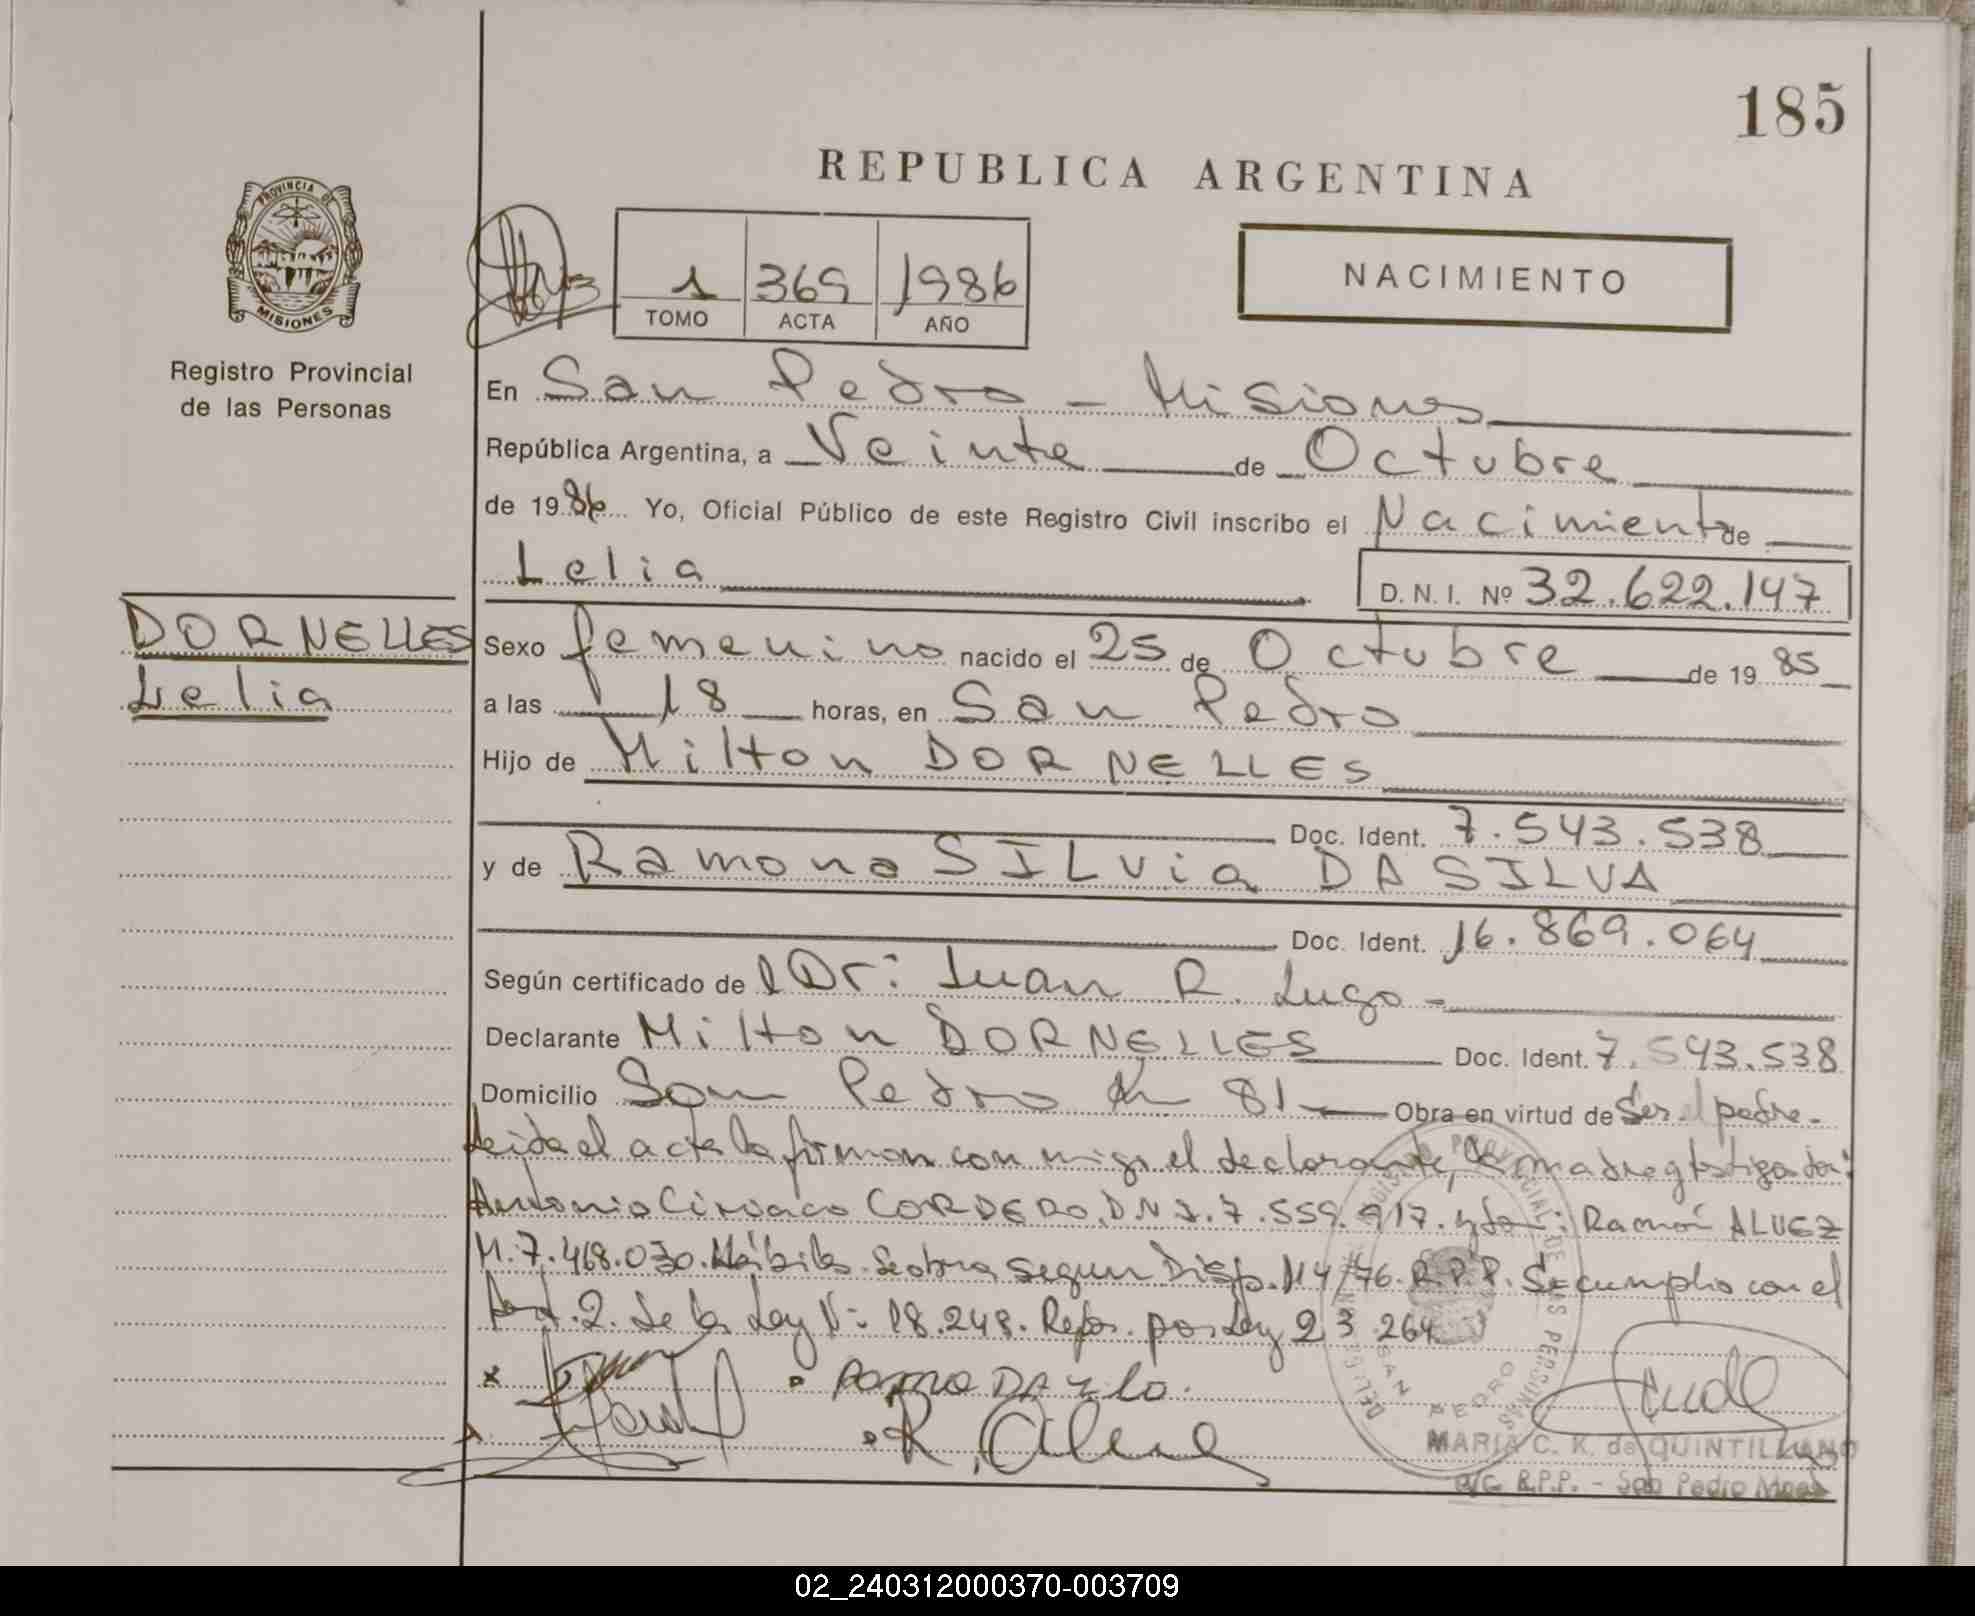 185
REPUBLICA ARGENTINA
PROVINCIA DE
MISIONES
Registro Provincial
de las Personas
1 369 1986
TOMO ACTA AÑO
NACIMIENTO
En San Pedro - Misiones
República Argentina, a Veinte de Octubre
de 1986 Yo, Oficial Público de este Registro Civil inscribo el Nacimiento de
Lelia
D. N. I. Nº 32.622.147
DORNELLES
Lelia
Sexo femenino nacido el 25 de Octubre de 1985
a las 18 horas, en San Pedro
Hijo de Milton DORNELLES
Doc. Ident. 7.543.538
y de Ramona SILVia DA SILVA
Doc. Ident. 16.869.064
Según certificado del Dr: Juan R. Lugo -
Declarante Milton DORNELLES Doc. Ident. 7.543.538
Domicilio San Pedro Km 81 Obra en virtud de Ser el padre.
Leida el acta la firman con migo el declarante, la madre y testigos
Antonio Ciriaco CORDERO. D.N.I. 7.559.917. Ramón ALVEZ
M. 7.468.030. Hábiles. Se obra segun Disp. 114/76. R.P.P. Se cumplio con el
Art. 2. de la Ley N: 18.248. Refor. por Ley 23.264
R. Alvez
REGISTRO PROVINCIAL DE LAS PERSONAS
SAN PEDRO
MARIA C. K. de QUINTILLANO
R.P.P. - San Pedro Mnes
02_240312000370-003709